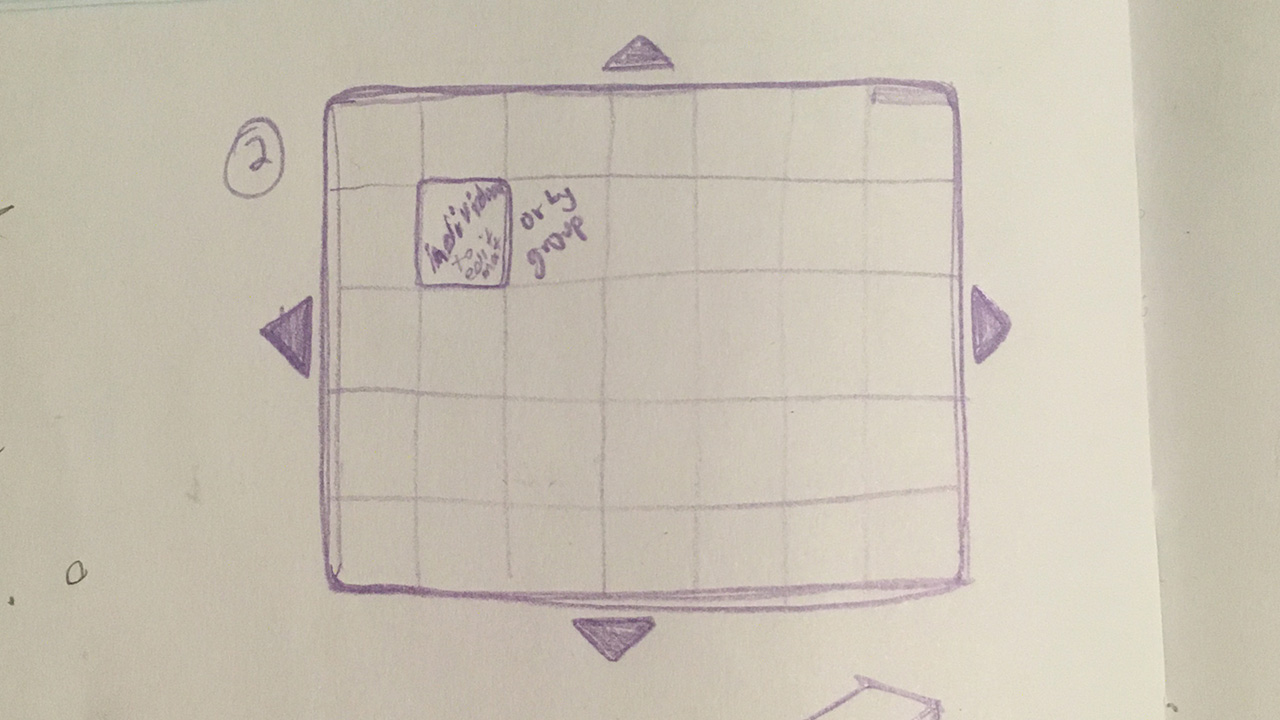 2
individual
to
edit
or by
group